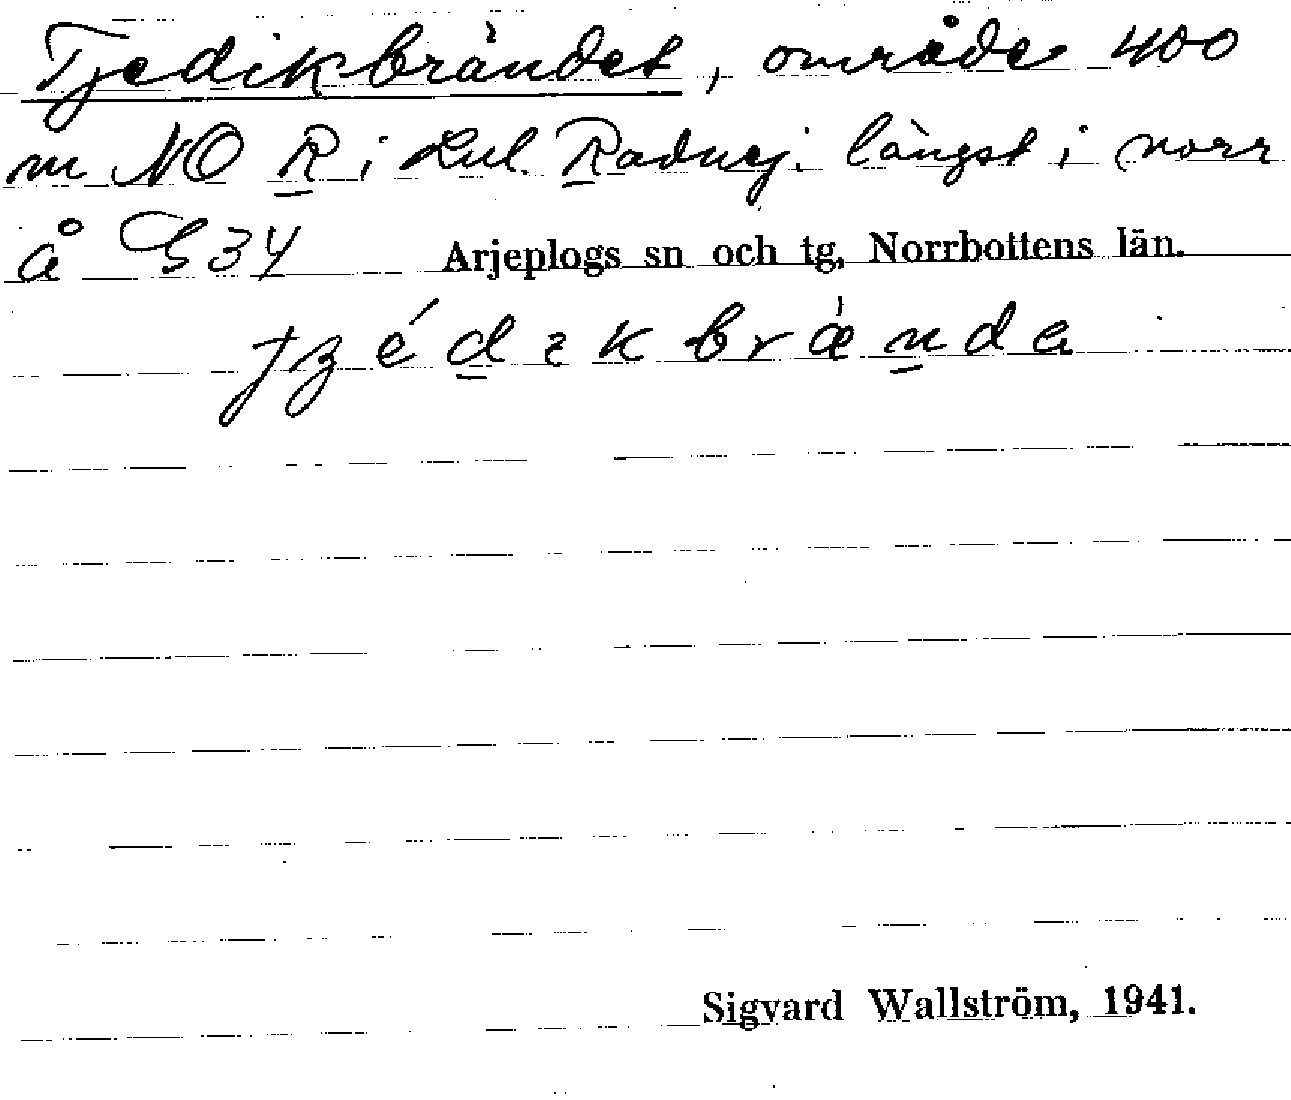 Tjedikbrändet, område 400
m NO R i Lul. Radnej. längst i norr
å G34 Arjeplogs sn och tg, Norrbottens län.
tʒéd̲ɩkbrænda
Sigvard Wallström, 1941.